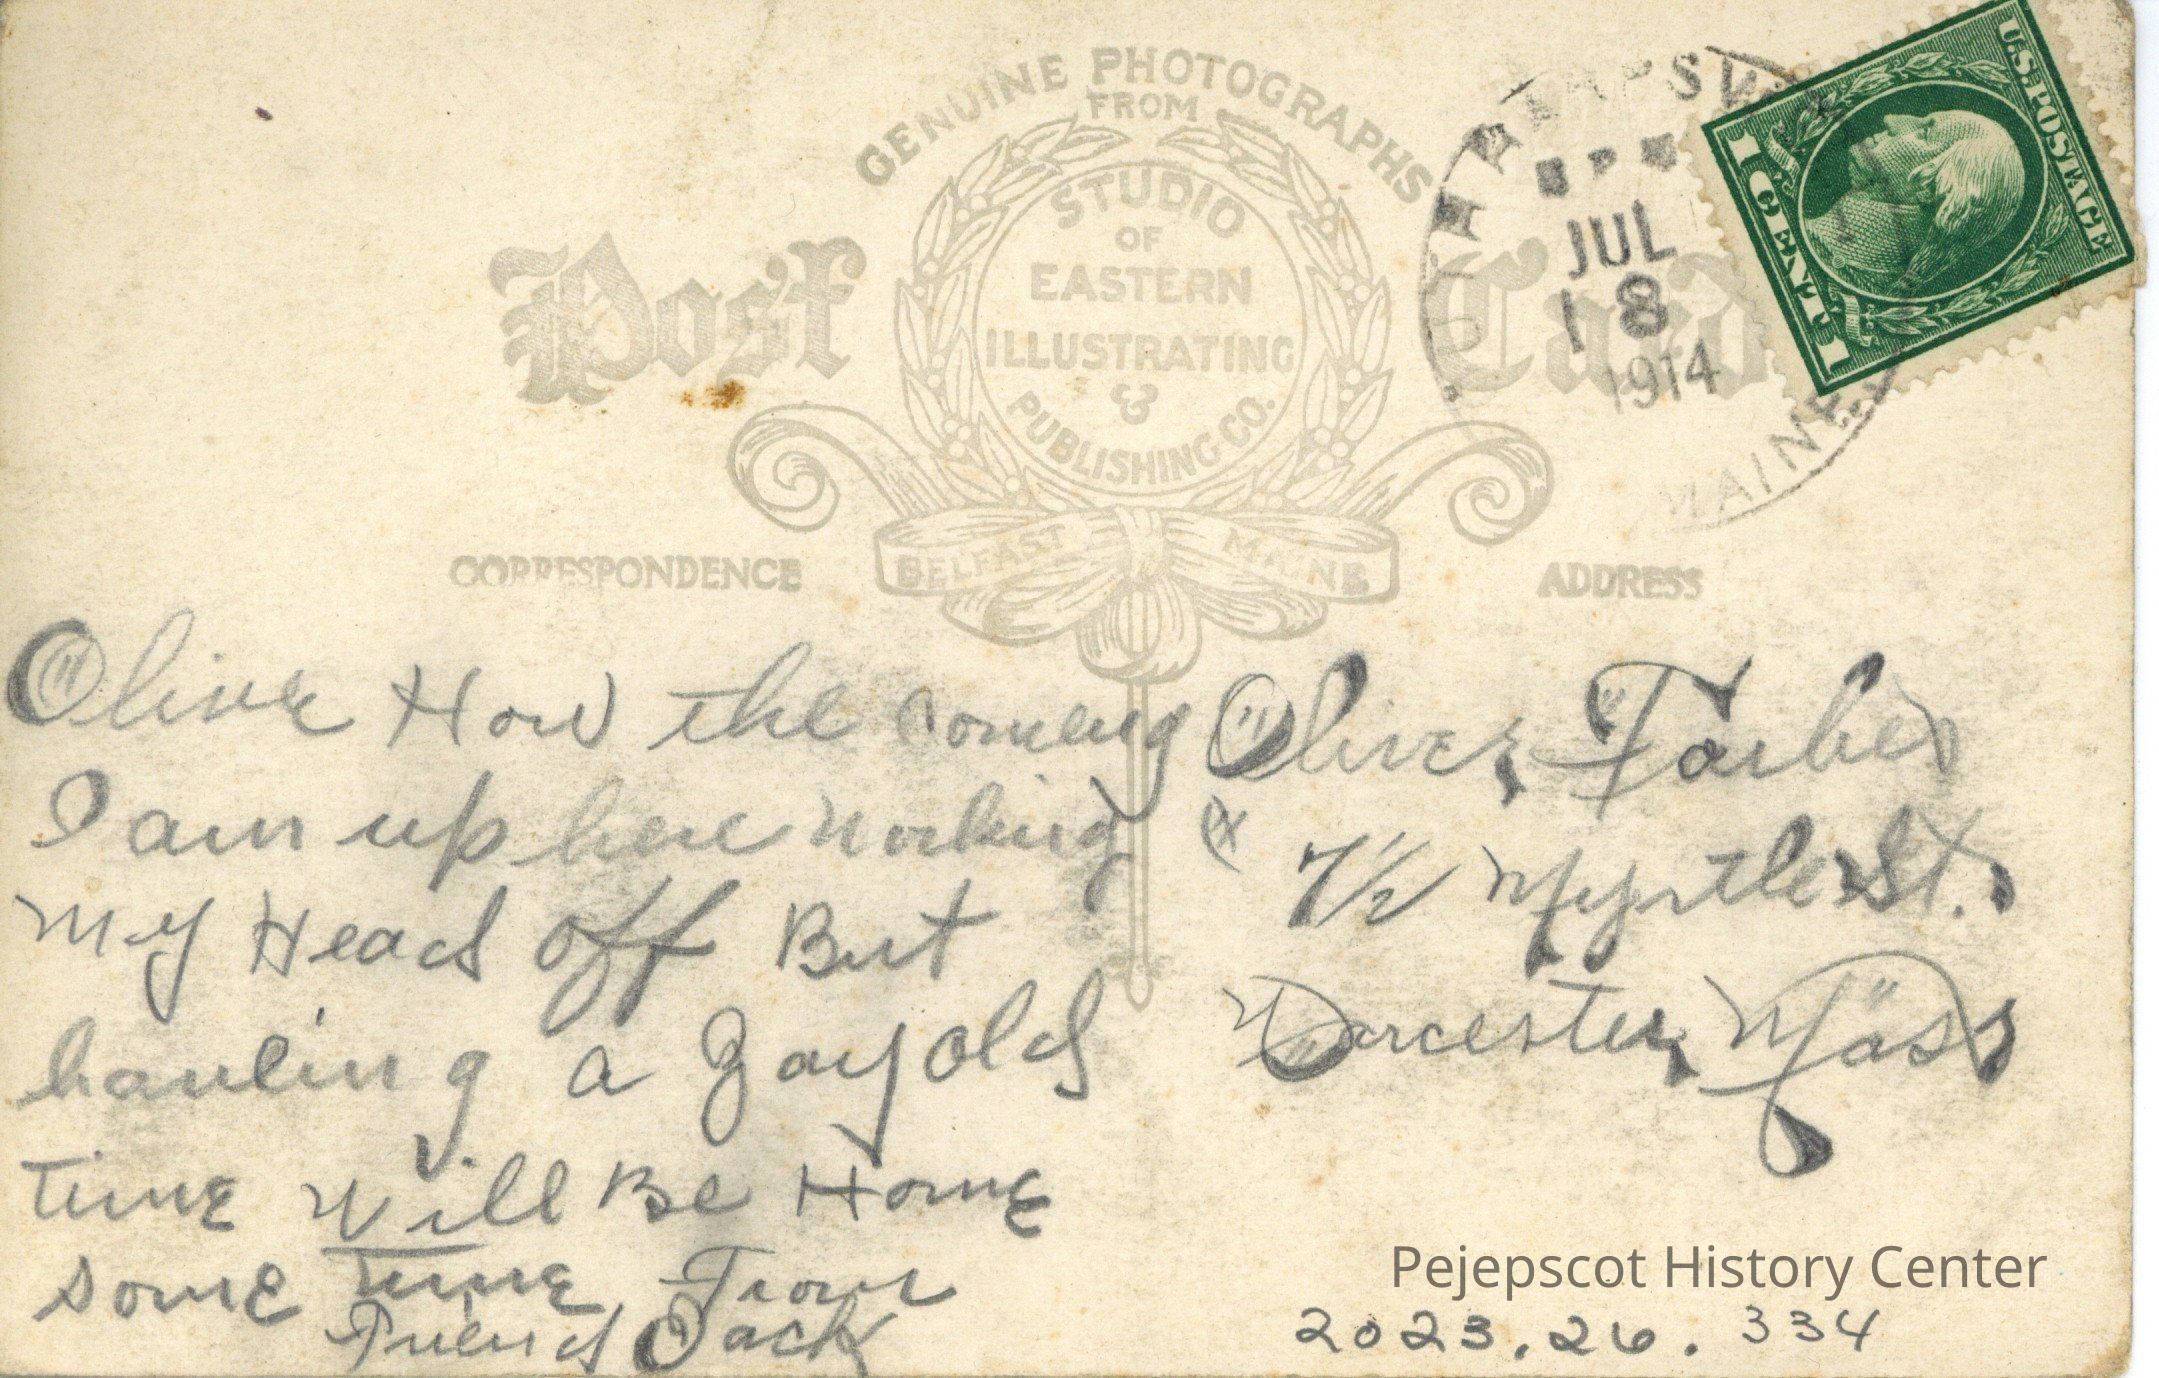 GENUINE PHOTOGRAPHS
FROM
STUDIO
OF
EASTERN
ILLUSTRATING
&
PUBLISHING CO.
BELFAST MAINE
Post Card
CORRESPONDENCE
ADDRESS
JUL
18
1914
MAINE
U.S. POSTAGE
1 CENT 1
Olive How the Comeing
I am up here working
My Head off But
haveing a gay old
time Will Be Home
some time From
Friend Jack
Oliver
7 1/2 Myrtle St.
Worcester, Mass
Pejepscot History Center
2023.26.334